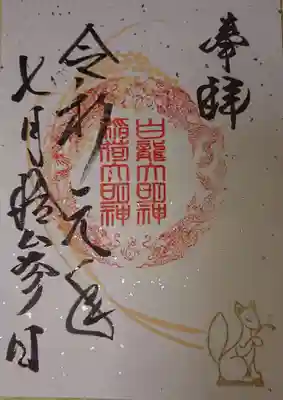 奉拝
白龍大明神
稲荷大明神
令和元年
七月拾参日